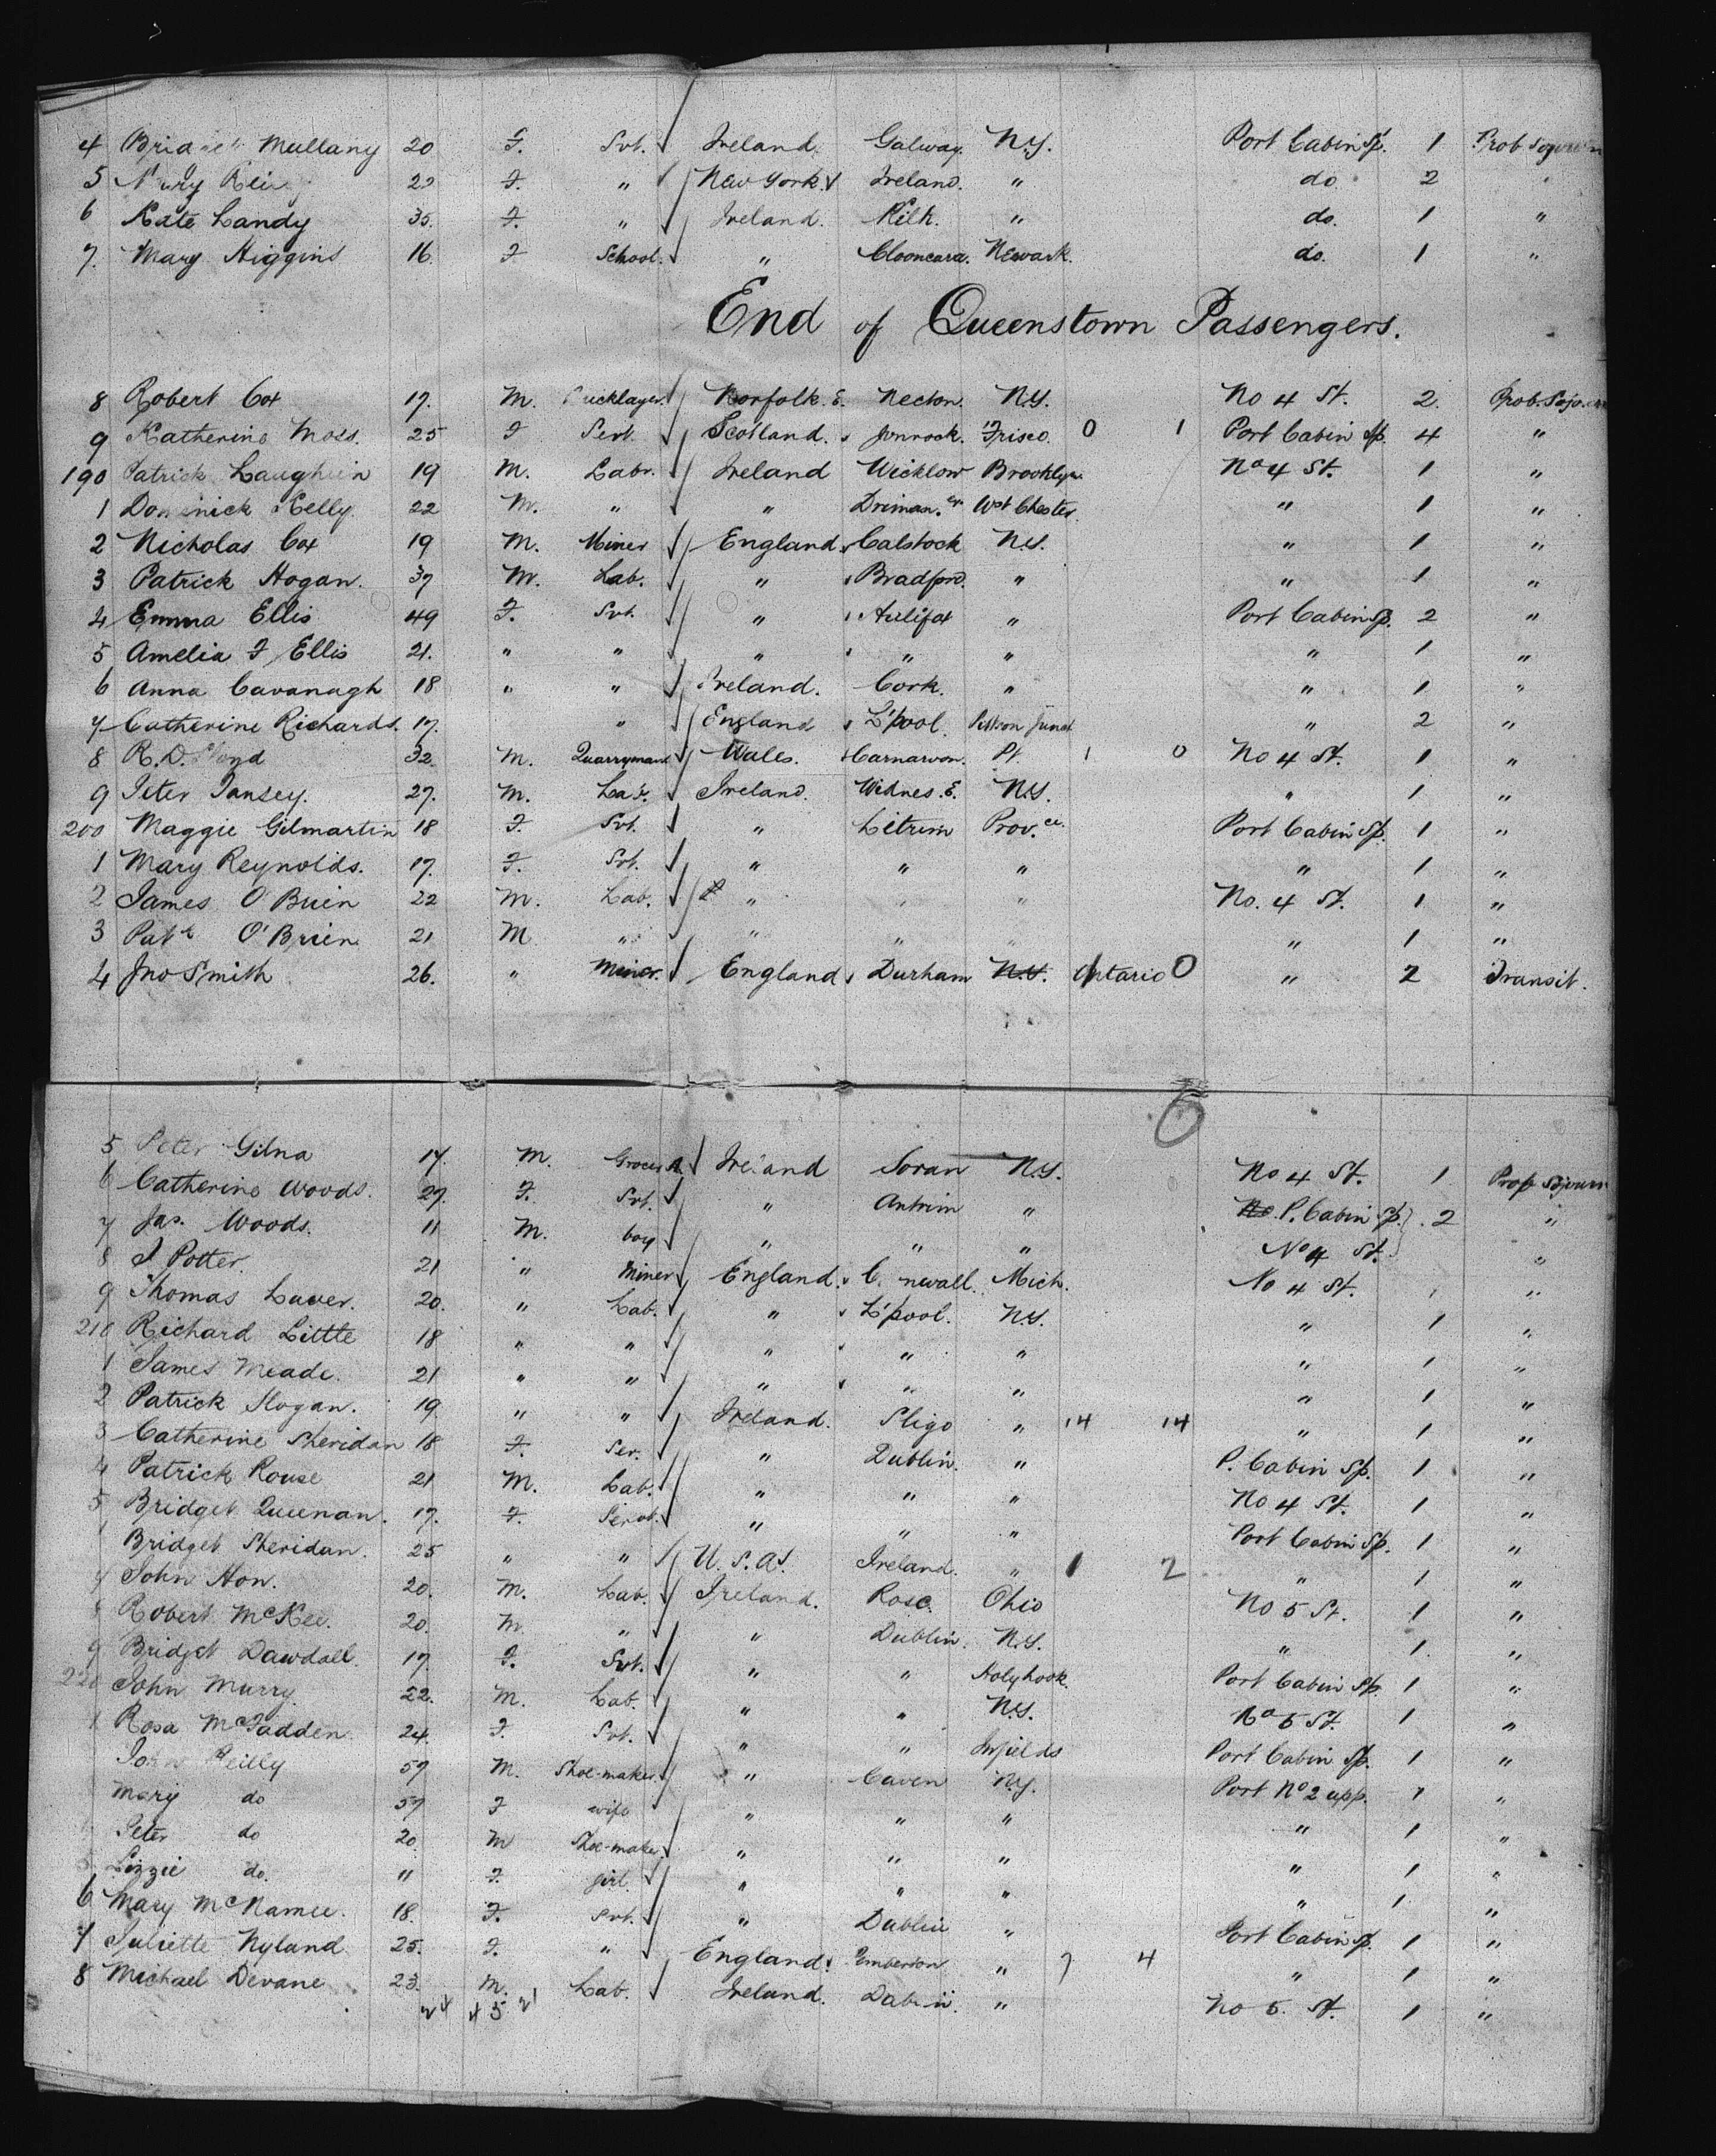 4 Bridget Mullany 20 F. Svt. Ireland. Galway. N.Y. Port Cabin Sp. 1 Prob Sojourn
5 Mary 22 F. " New York. Ireland. " do 2 "
6 Kate Landy 35. F. " Ireland. Kilk. " do. 1 "
7. Mary Higgins 16. F School. " Clooncara. Newark. do. 1 "
End of Queenstown Passengers.
8 Robert Cox 17. M. Bricklayer. Norfolk. E. Necton. N.Y. No 4 St. 2. Prob. Sojourn
9 Katherine Moss. 25 F Servt. Scotland. Frisco. 0 1 Port Cabin Sp. 4 "
190 Patrick Laughlin 19 M. Labr. Ireland Wicklow Brooklyn. No 4 St. 1 "
1 Dominick Kelly. 22 M. " " West Chester. " 1 "
2 Nicholas Cox 19 M. Miner England. Calstock N.Y. " 1 "
3 Patrick Hogan. 37 M. Lab. " Bradford. " " 1 "
4 Emma Ellis 49 F. Svt. " Halifax " Port Cabin Sp. 2 "
5 Amelia F Ellis 21. " " " " " " 1 "
6 Anna Cavanagh 18 " " Ireland. Cork. " " 1 "
7 Catherine Richards. 17. " England L'pool. " 2 "
8 R. D. 32. M. Quarryman Wales. Carnarvon. 1 0 No 4 St. 1 "
9 Peter Tansey. 27. M. Lab. Ireland. Widnes. E. N.Y. " 1 "
200 Maggie Gilmartin 18 F. Svt. " Leitrim Prov.ce. Port Cabin Sp. 1 "
1 Mary Reynolds. 17. F. Svt. " " " " 1 "
2 James O'Brien 22 M. Lab. " " " No. 4 St. 1 "
3 Patk O'Brien 21 M " " " " " 1 "
4 Jno Smith 26. " Miner. England Durham N.Y. Ontario 0 " 2 Transit.
6
5 Peter Gilna 17. M. Grocer A. Ireland Soran N.Y. No 4 St. 1 Prob Sojourn
6 Catherine Woods. 27. F. Svt. " Antrim " No. P. Cabin Sp. 2 "
7 Jas. Woods. 11 M. boy " " " No 4 St. "
8 J Potter. 21 " Miner England. Cornwall. Mich. No 4 St. 1 "
9 Thomas Laver. 20. " Lab. " L'pool. N.Y. " 1 "
210 Richard Little 18 " " " " " " 1 "
1 James Meade. 21 " " " " " " 1 "
2 Patrick Hogan. 19. " " Ireland. Sligo " 14 14 " 1 "
3 Catherine Sheridan 18 F. Ser. " Dublin. " P. Cabin Sp. 1 "
4 Patrick Rouse 21 M. Lab. " " " No 4 St. 1 "
5 Bridget Queenan. 17. F. Servt. " " " Port Cabin Sp. 1 "
Bridget Sheridan. 25 " " U.S.A. Ireland. " 1 2 " 1 "
7 John Hon. 20. M. Lab. Ireland. Rosc. Ohio No 5 St. 1 "
8 Robert McKee. 20. M. " " Dublin. N.Y. " 1. "
9 Bridget Dawdall. 17. F. Svt. " " Holyhook. Port Cabin Sp. 1 "
220 John Murry 22. M. Lab. " " N.Y. No 5 St. 1 "
1 Rosa McFadden 24. F. Svt. " " Port Cabin Sp. 1 "
John Reilly 59 M. Shoe-maker. " Caven N.Y. Port No 2 upp. 1 "
Mary do 57 F wife " " " " 1 "
Peter do 20. M Shoe-maker. " " " " 1 "
5 Lizzie do. 11 F. girl. " " " " 1. "
6 Mary McNamee. 18. F. Svt. " Dublin " Port Cabin Sp. 1 "
7 Juliette Nyland 25. F. " England. Pemberton " 7 4 " 1 "
8 Michael Devane 23. M. Lab. Ireland. Dublin. " No 5. St. 1 "
24 45 21